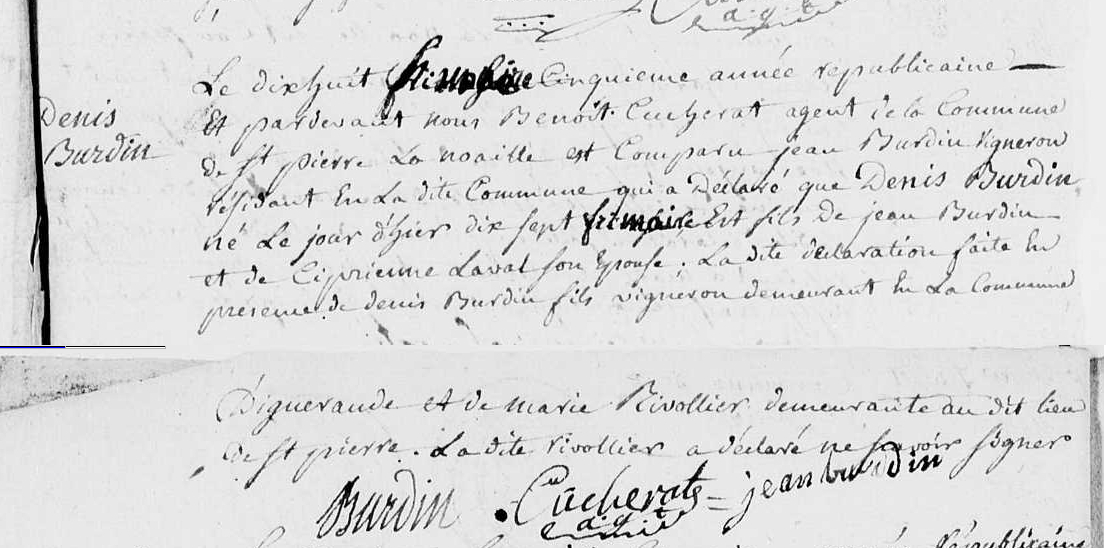 a.g.t
Le dixhuit frimaire Cinquieme année republicaine
Denis
Burdin
Et pardevant nous Benoit Cucherat agent de la Commune
de St pierre La noaille est Comparu jean Burdin Vigneron
résidant En La dite Commune qui a Déclaré que Denis Burdin
né Le jour d'hier dix sept frimaire Est fils De jean Burdin
et de Ciprienne Laval son Epouse. La dite déclaration faite En
presence de denis Burdin fils vigneron demeurant En La Commune
D'iguerande et de marie Rivollier demeurante au dit lieu
de St pierre. La dite rivollier a déclaré ne savoir signer
Burdin Cucherat jean burdin
a.g.t
républicaine